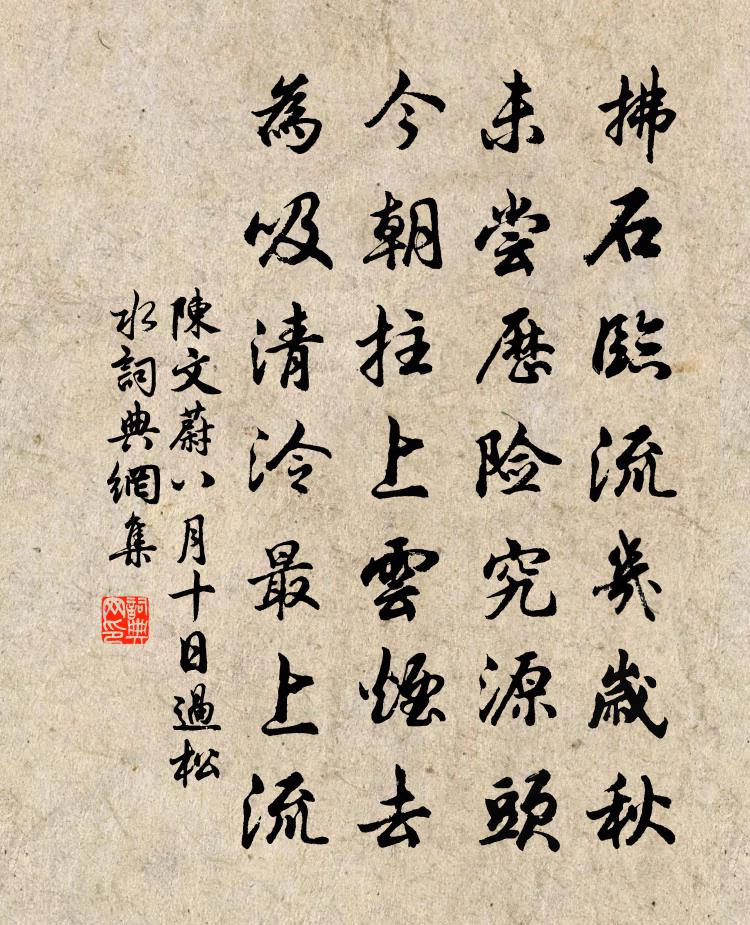 拂石臨流幾歲秋
未嘗歷险究源頭
今朝拄上雲煙去
為吸清泠最上流
陳文蔚八月十日過松
水詞典網集
詞典
网印